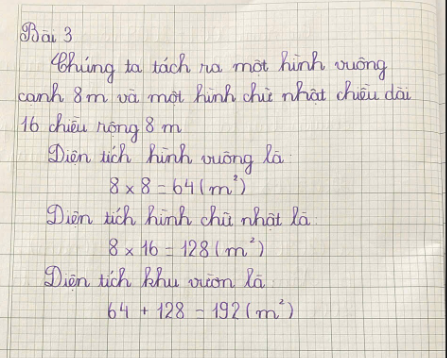 Bài 3
Chúng ta tách ra một hình vuông
cạnh 8m và một hình chữ nhật chiều dài
16 chiều rộng 8 m
Diện tích hình vuông là
8 × 8 = 64 (m²)
Diện tích hình chữ nhật là
8 × 16 = 128 (m²)
Diện tích khu vườn là
64 + 128 = 192 (m²)